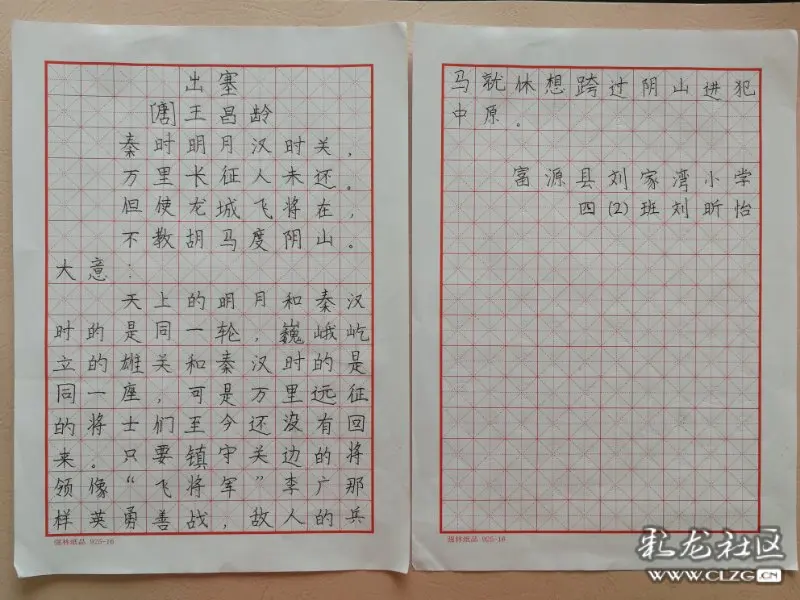 出塞
[唐]王昌龄
秦时明月汉时关，
万里长征人未还。
但使龙城飞将在，
不教胡马度阴山。
大意：
天上的明月和秦汉
时的是同一轮，巍峨屹
立的雄关和秦汉时的是
同一座，可是万里远征
的将士们至今还没有回
来。只要镇守关边的将
领像“飞将军”李广那
样英勇善战，敌人的兵
强林纸品 925-16
马就休想跨过阴山进犯
中原。
富源县刘家湾小学
四(2)班刘昕怡
强林纸品 925-16
彩龙社区
WWW.CLZG.CN